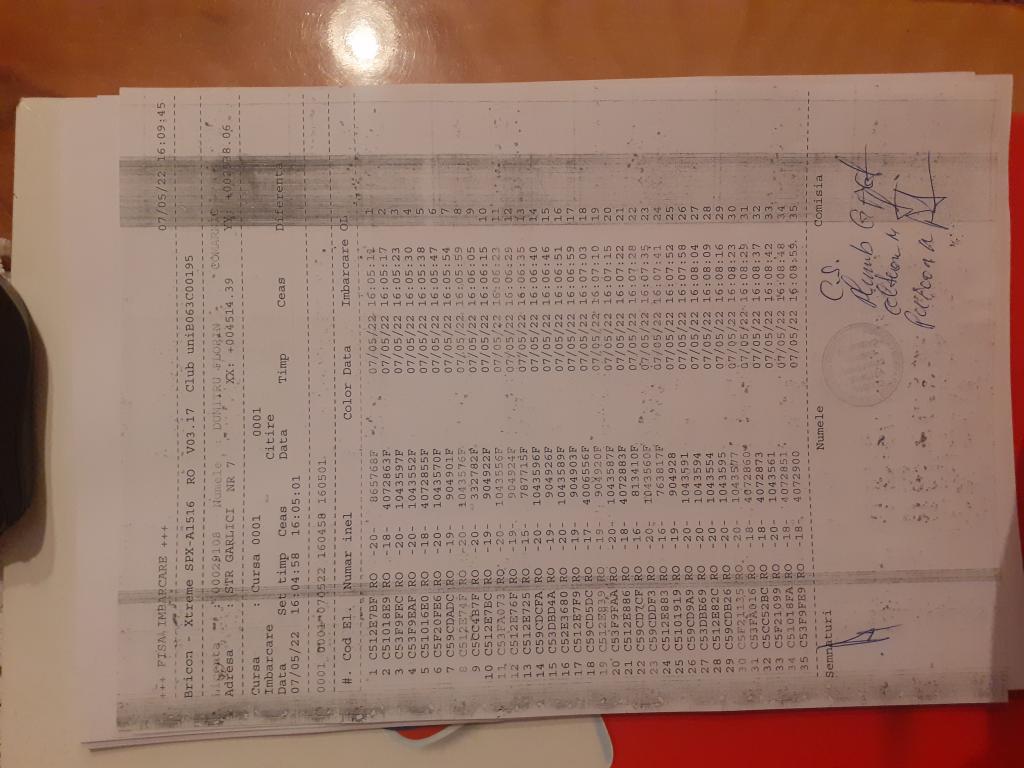 +++ FISA IMBARCARE +++ 07/05/22 16:09:45
Bricon - Xtreme SPX-A1516 RO V03.17 Club uniB063C00195
00029108 Numele : DUMITRU FLORIN
Adresa : STR GARLICI NR 7 XX: +004514.39
Cursa : Cursa 0001 0001
Imbarcare Citire
Data Set timp Ceas Data Timp Ceas Diferenta
07/05/22 16:04:58 16:05:01
0001 0001 070522 160458 160501
#. Cod El. Numar inel Color Data Imbarcare OL
1 C512E7BF RO -20- 865768F 07/05/22 16:05:12 1
2 C51018E9 RO -18- 4072863F 07/05/22 16:05:17 2
3 C53F9FEC RO -20- 1043597F 07/05/22 16:05:23 3
4 C53F9EAF RO -20- 1043552F 07/05/22 16:05:30 4
5 C51016E0 RO -18- 4072855F 07/05/22 16:05:38 5
6 C5F20FE6 RO -20- 1043570F 07/05/22 16:05:47 6
7 C59CDADC RO -19- 904901F 07/05/22 16:05:54 7
8 C512E74F RO -20- 1043576F 07/05/22 16:05:59 8
9 C5CC4B7F RO -20- 332782F 07/05/22 16:06:05 9
10 C512E7BC RO -19- 904922F 07/05/22 16:06:15 10
11 C53FA073 RO -20- 1043556F 07/05/22 16:06:23 11
12 C512E76F RO -19- 904924F 07/05/22 16:06:29 12
13 C512E725 RO -15- 787715F 07/05/22 16:06:35 13
14 C59CDCFA RO -20- 1043596F 07/05/22 16:06:40 14
15 C53DBD4A RO -19- 904926F 07/05/22 16:06:46 15
16 C52E3680 RO -20- 1043589F 07/05/22 16:06:51 16
17 C512E7F9 RO -19- 904903F 07/05/22 16:06:59 17
18 C59CD5DC RO -17- 4006556F 07/05/22 16:07:03 18
19 RO -19- 904920F 07/05/22 16:07:10 19
20 C53F9FAA RO -20- 1043587F 07/05/22 16:07:15 20
21 C512E886 RO -18- 4072883F 07/05/22 16:07:22 21
22 C59CD7CF RO -16- 813410F 07/05/22 16:07:28 22
23 C59CDDF3 RO -20- 1043560F 07/05/22 16:07:35 23
24 C512E883 RO -16- 763817F 07/05/22 16:07:41 24
25 C5101919 RO -19- 904928 07/05/22 16:07:52 25
26 C59CD9A9 RO -20- 1043591 07/05/22 16:07:58 26
27 C53DBE69 RO -20- 1043594 07/05/22 16:08:04 27
28 C512E82C RO -20- 1043554 07/05/22 16:08:09 28
29 C59CDB26 RO -20- 1043595 07/05/22 16:08:16 29
30 C5F21135 RO -20- 1043577 07/05/22 16:08:23 30
31 C53FA016 RO -18- 4072860 07/05/22 16:08:29 31
32 C5CC52BC RO -18- 4072873 07/05/22 16:08:37 32
33 C5F21099 RO -20- 1043561 07/05/22 16:08:42 33
34 C51018FA RO -18- 4072851 07/05/22 16:08:48 34
35 C53F9FE9 RO -18- 4072900 07/05/22 16:08:59 35
Semnaturi Numele Comisia
C.S.